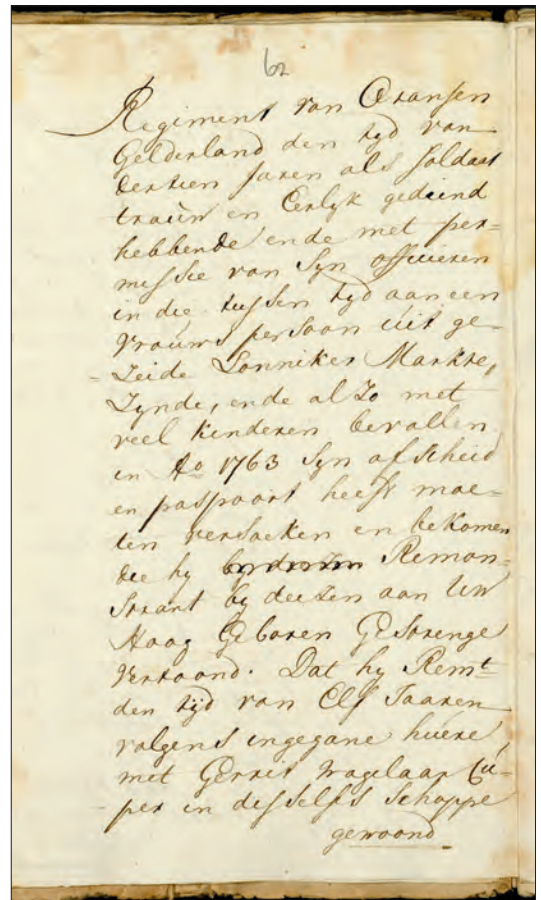 62
Regiment van Oranjen
Gelderland den tyd van
dertien Jaren als Soldaat
trauw en Eerlyk gediend
hebbende ende met per=
missie van Syn officieren
in die tussen tyd aan een
vrouws persoon uit ge=
=Zeide Lonniker Markte,
Zynde, ende al Zo met
veel Kinderen bevallen
in Ao 1763 Syn afscheid
en paspoort heeft moe=
ten versoeken en bekomen
die hy Remon=
strant by deezen aan Uw
Hoog Geboren Gestrenge
Vertoond. Dat hy Remt=
den tyd van Elf Jaaren
volgens ingegane huere
met Gerrit Wagelaar Cu=
per in desselfs Schoppe
gewoond